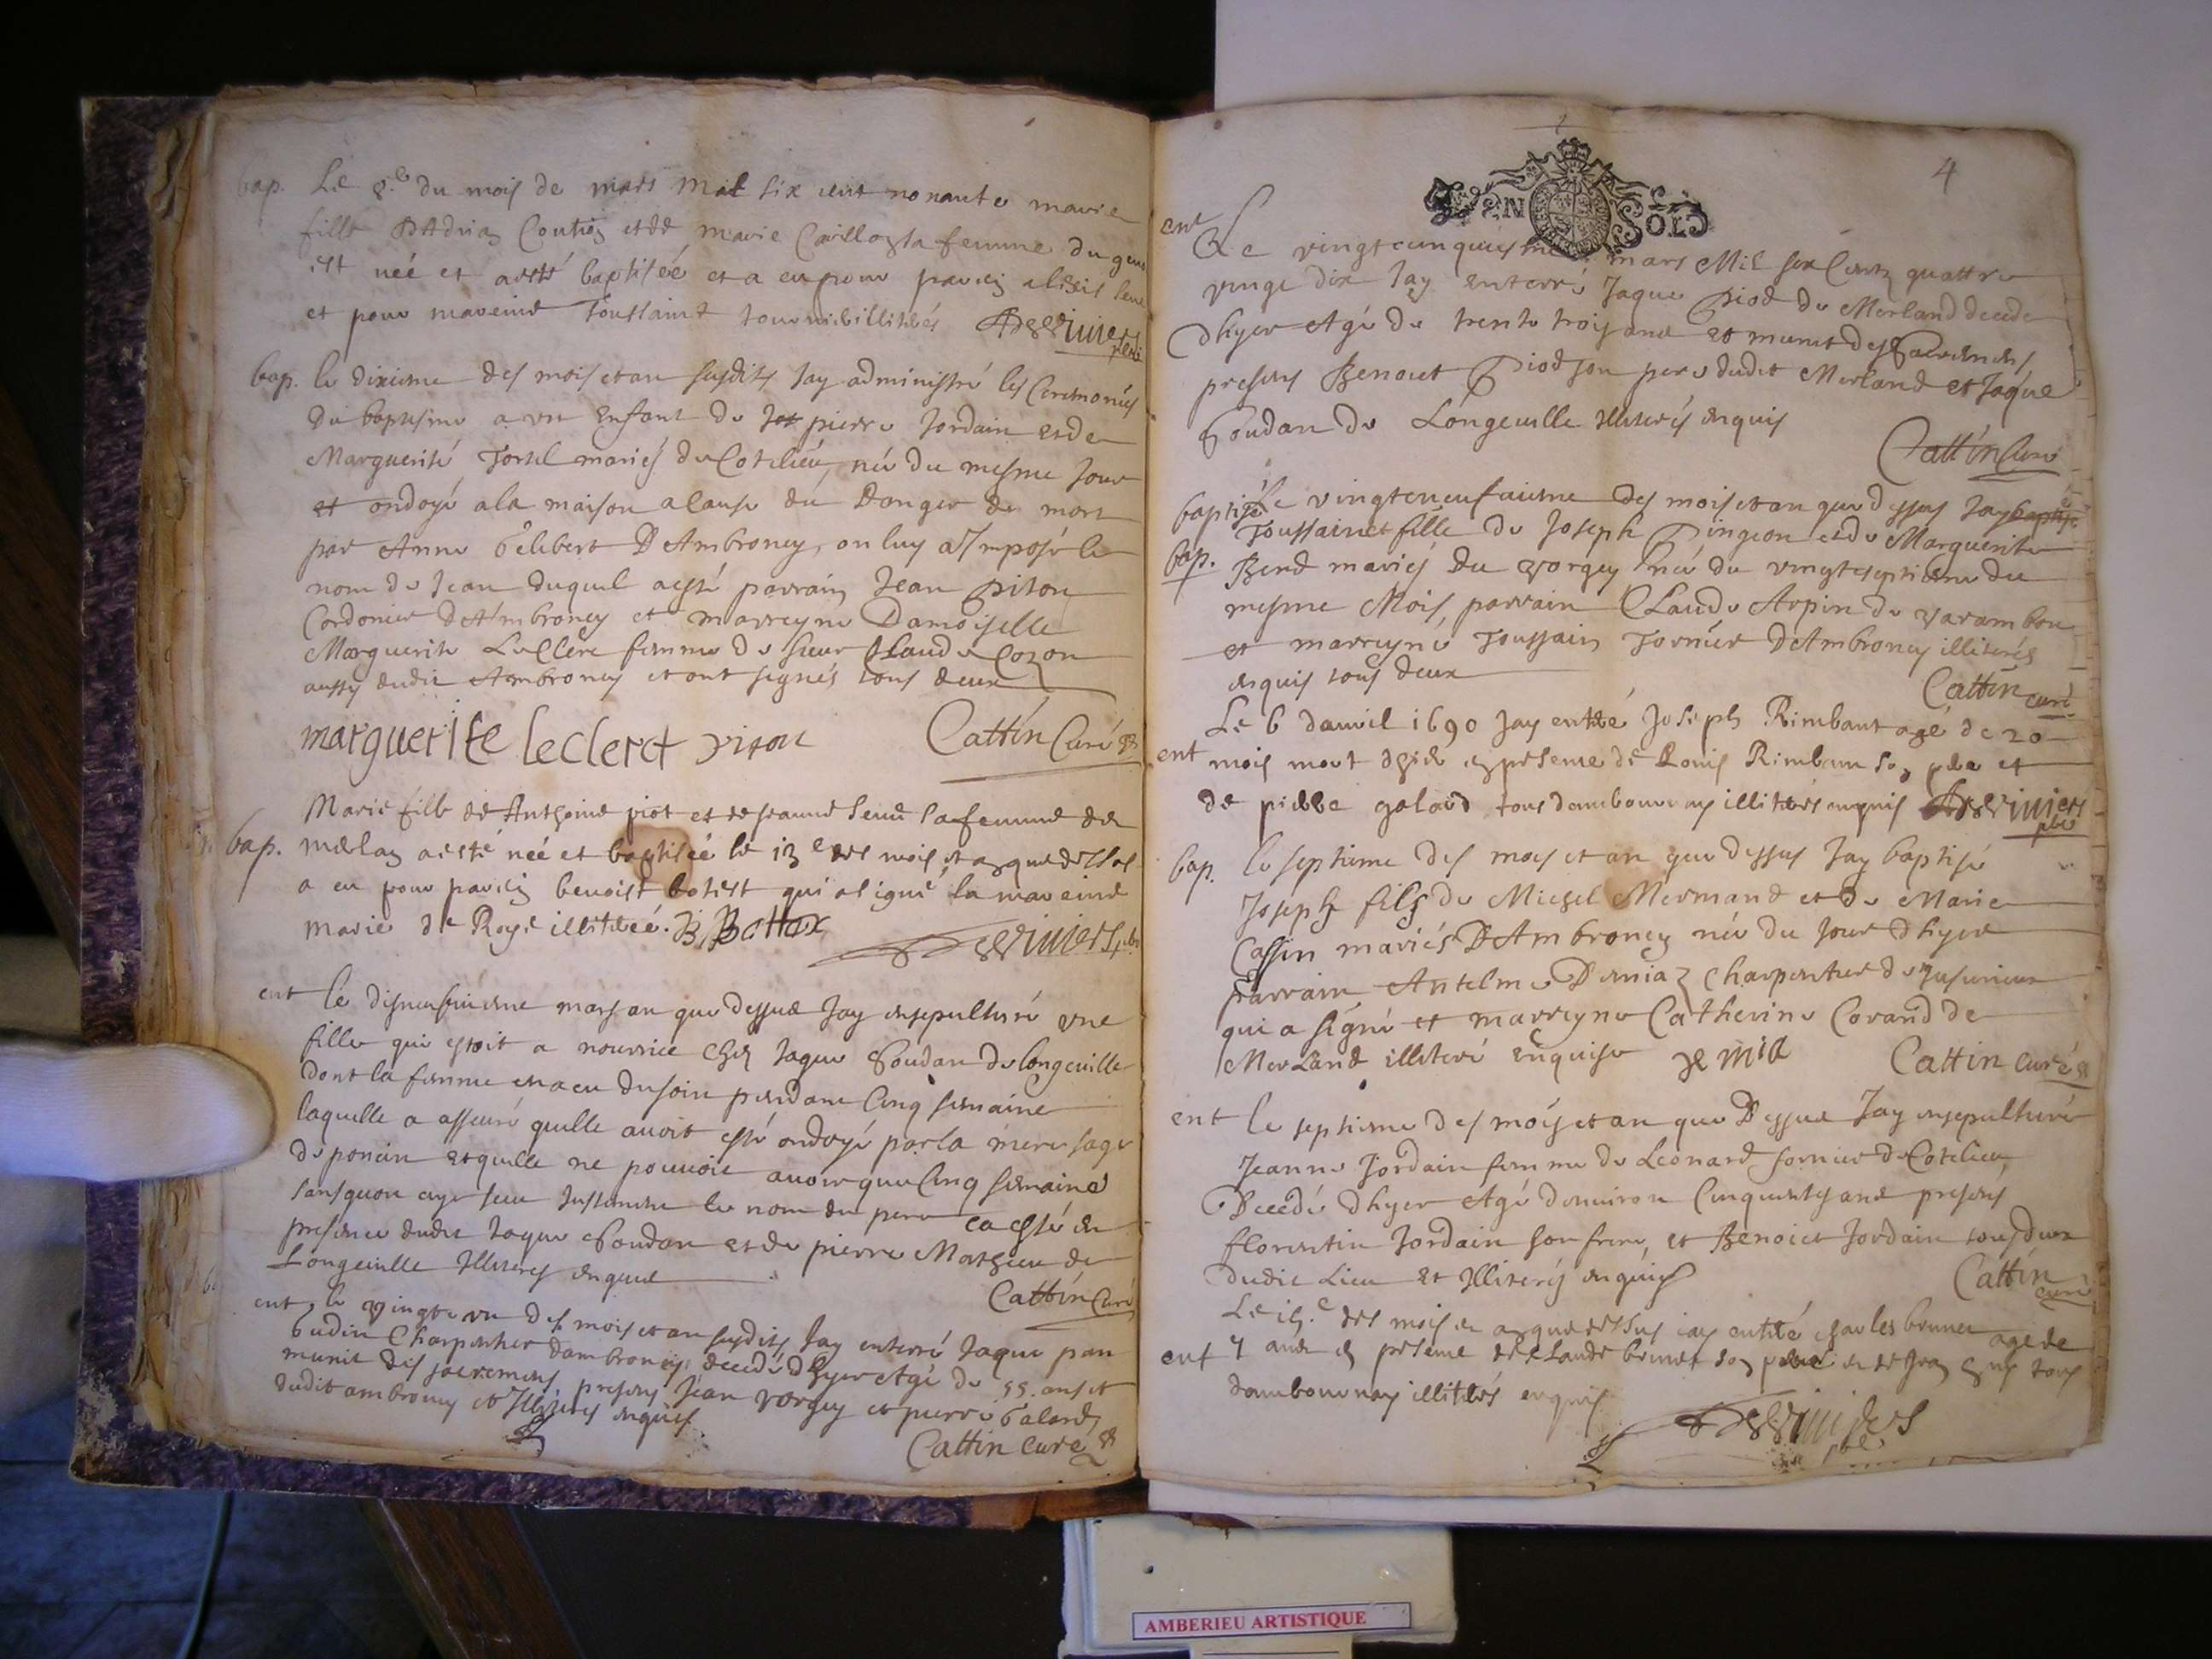 bap. Le 8.e du mois de mars mil six cent nonante marie
fille D'Adrian Coutier et de marie Caillon sa femme du
est née et a esté baptisée et a eu pour parrein
et pour mareine Toussaint illitérés
bap. le dixieme des mois et an susdits Jay administré les Ceremonies
du baptesme a un Enfant de pierre Jordain et de
Marguerite Fortel mariés de Cotelieu, né du mesme Jour
et ondoyé a la maison a Cause du Danger de mort
par Anne Gelibert D'Ambronay, on luy a Imposé le
nom de Jean duquel a esté parrain Jean Piron
Cordonier d'Ambronay et marreyne Damoiselle
Marguerite LeClerc femme de sieur Claude Cozon
aussy dudit Ambronay et ont signés tous deux
marguerite leclerct piron Cattin Curé
Marie fille de Anthoine piot et de Jeanne sa femme de
bap. merlan a esté née et baptisée le 13e des mois et an que dessus
a eu pour parrein benoist bottex qui a signé la mareine
marie de Roysé illiterée. B. Bottex
ent le dixneufvieme mars an que dessus Jay ensepulturé une
fille qui estoit a nourrice chez Jaque Goudan de longeville
dont la femme en a eu du soin pendant Cinq semaine
laquelle a asseuré quelle avoit esté ondoyé par la mere sage
de poncin et quelle ne pouvoit avoir que Cinq semaines
sans quon aye sceu Justement le nom du pere ca esté en
presence dudit Jaque Goudan et de pierre Mathieu de
Longeville Illiterés enquis
Cattin Curé
ent. le vingt un des mois et an susdits Jay enterré Jaque pan
Gudin Charpentier dambronay decedé dhyer Agé de 55. ans et
munit des sacremens presens Jean vorgey et pierre Galand
dudit ambronay et Illiterés enquis
Cattin curé
4
DEN SOLD
ent Le vingt cinquiesme mars Mil six Cents quattre
vingt dix Jay enterré Jaque Piod de Merland decede
dhyer Agé de trente trois ans et munit des Sacremens
presens Benoit Piod son pere dudit Merland et Jaque
Goudan de Longeville Illiterés enquis
Cattin Curé
baptisé Le vingt neufvieme des mois et an que dessus Jay baptisé
Toussainte fille de Joseph Pingeon et de Marguerite
bap. Bend mariés Du vorgey née du vingtseptieme du
mesme Mois, parrain Claude Arpin de varambon
et marreyne Toussain Fornier D'Ambronay illiterés
enquis tous deux
Cattin curé
Le 6 davril 1690 Jay entéré Joseph Rimbaut agé de 20
ent mois mort en presence de Louis Rimbaut son pere et
de pierre galand tous dambournay illiterés enquis
bap. le septieme des mois et an que dessus Jay baptisé
Joseph fils de Michel Mermand et de Marie
Cassin mariés D'Ambronay né du Jour dhyer
parrain Antelme Demiaz Charpentier de Jusurieux
qui a signé et marreyne Catherine Corand de
MerLand illiteré enquise
Cattin curé
ent le septieme des mois et an que Dessus Jay ensepulturé
Jeanne Jordain femme de Leonard fornier de Cotelieu,
Decedé dhyer Agé denviron Cinquante ans presens
florentin Jordain son frere, et Benoict Jordain tous deux
dudit Lieu et Illiterés enquis
Cattin curé
Le 15.e des mois et an que dessus iay entéré charles brunet agé de
ent 7 ans en presence de Claude brunet son pere et de Jean tous
dambournay illiterés enquis
AMBERIEU ARTISTIQUE